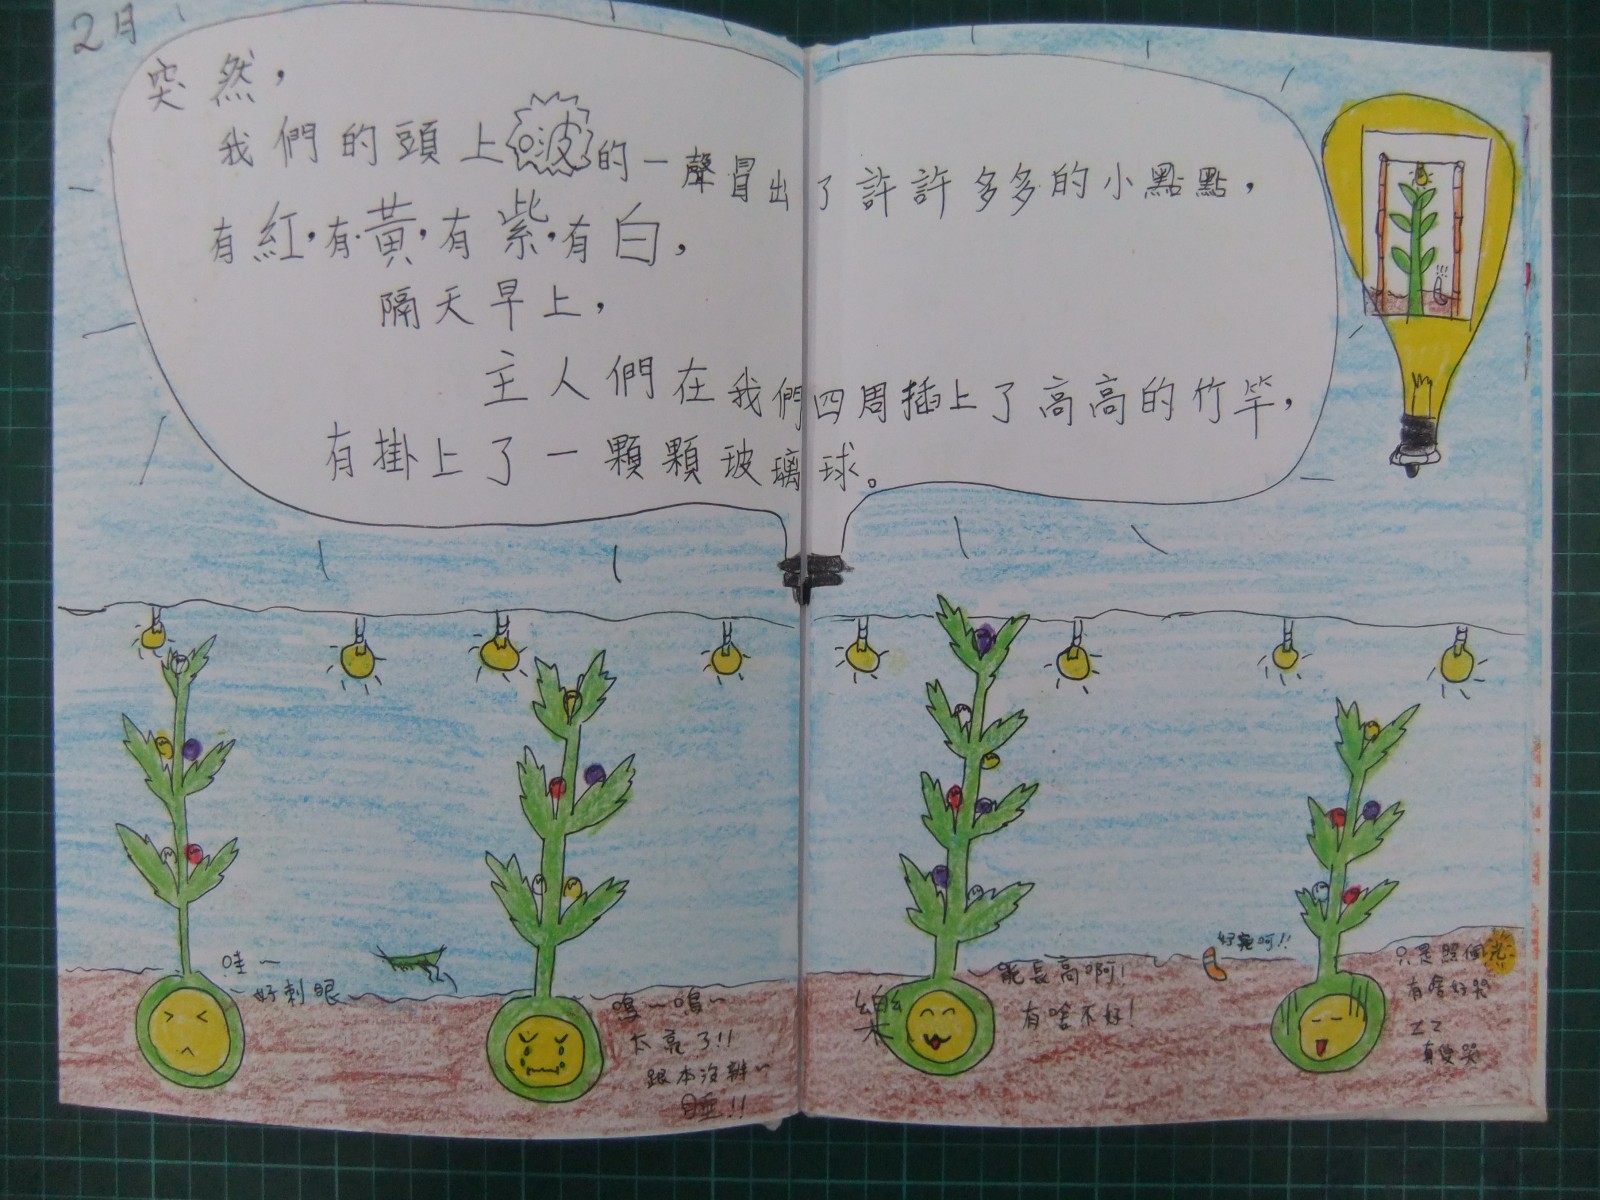 2月
突然，
我們的頭上啵的一聲冒出了許許多多的小點點，
有紅，有黃，有紫，有白，
隔天早上，
主人們在我們四周插上了高高的竹竿，
有掛上了一顆顆玻璃球。
哇~
好刺眼~
嗚~嗚~
太亮了!!
跟本沒辦~
睡!!
樂
能長高啊!
有啥不好!
好亮呵!!
只是照個光
有啥好哭
ZZ
真愛哭